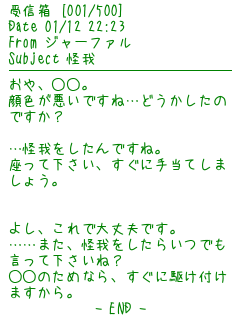 受信箱 [001/500]
Date 01/12 22:23
From ジャーファル
Subject 怪我
おや、○○。
顔色が悪いですね…どうかしたの
ですか？
…怪我をしたんですね。
座って下さい、すぐに手当てしま
しょう。
よし、これで大丈夫です。
……また、怪我をしたらいつでも
言って下さいね？
○○のためなら、すぐに駆け付け
ますから。
- END -